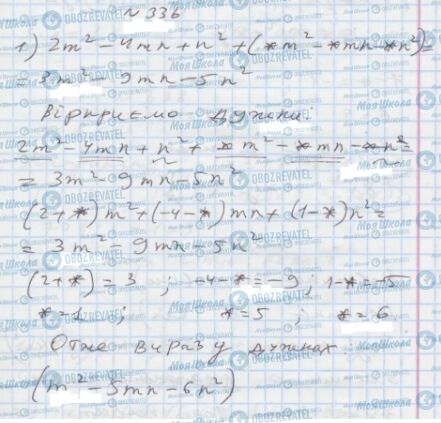 № 336
1) 2m² - 4mn + n² + (*m² - *mn - *n²) =
= 3m² - 9mn - 5n²
Відкриємо дужки:
2m² - 4mn + n² + *m² - *mn - *n² =
= 3m² - 9mn - 5n²
(2+*)m² + (-4-*)mn + (1-*)n² =
= 3m² - 9mn - 5n²
(2+*) = 3 ; -4-* = -9 ; 1-* = -5
* = 1 ; * = 5 ; * = 6
Отже вираз у дужках:
(m² - 5mn - 6n²)